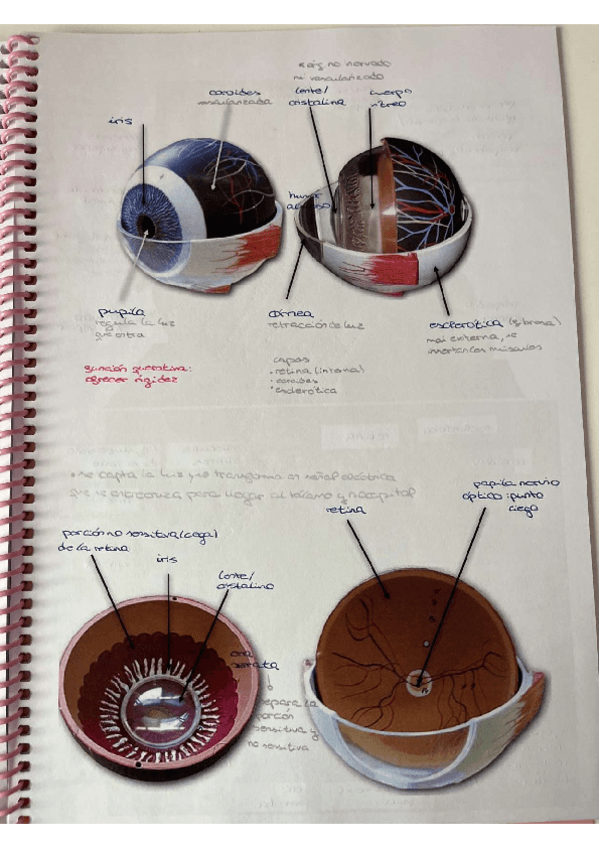 no nervado
ni vascularizado
coroides
vascularizada
lente/
cristalina
cuerpo
vítreo
iris
humor
acuoso
pupila
regula la luz
que entra
córnea
refracción de luz
esclerótica (fibrosa)
mas externa, se
insertan los músculos
función queratina:
ofrecer rigidez
capas
· retina (interna)
· coroides
· esclerótica
· se capta la luz y se transforma en señal eléctrica
que se encarga para llegar al tálamo y occipital
porción no sensitiva (ciega)
de la retina
iris
lente/
cristalino
retina
papila nervio
óptico: punto
ciego
ora
serrata
separa la
porción
sensitiva y
no sensitiva